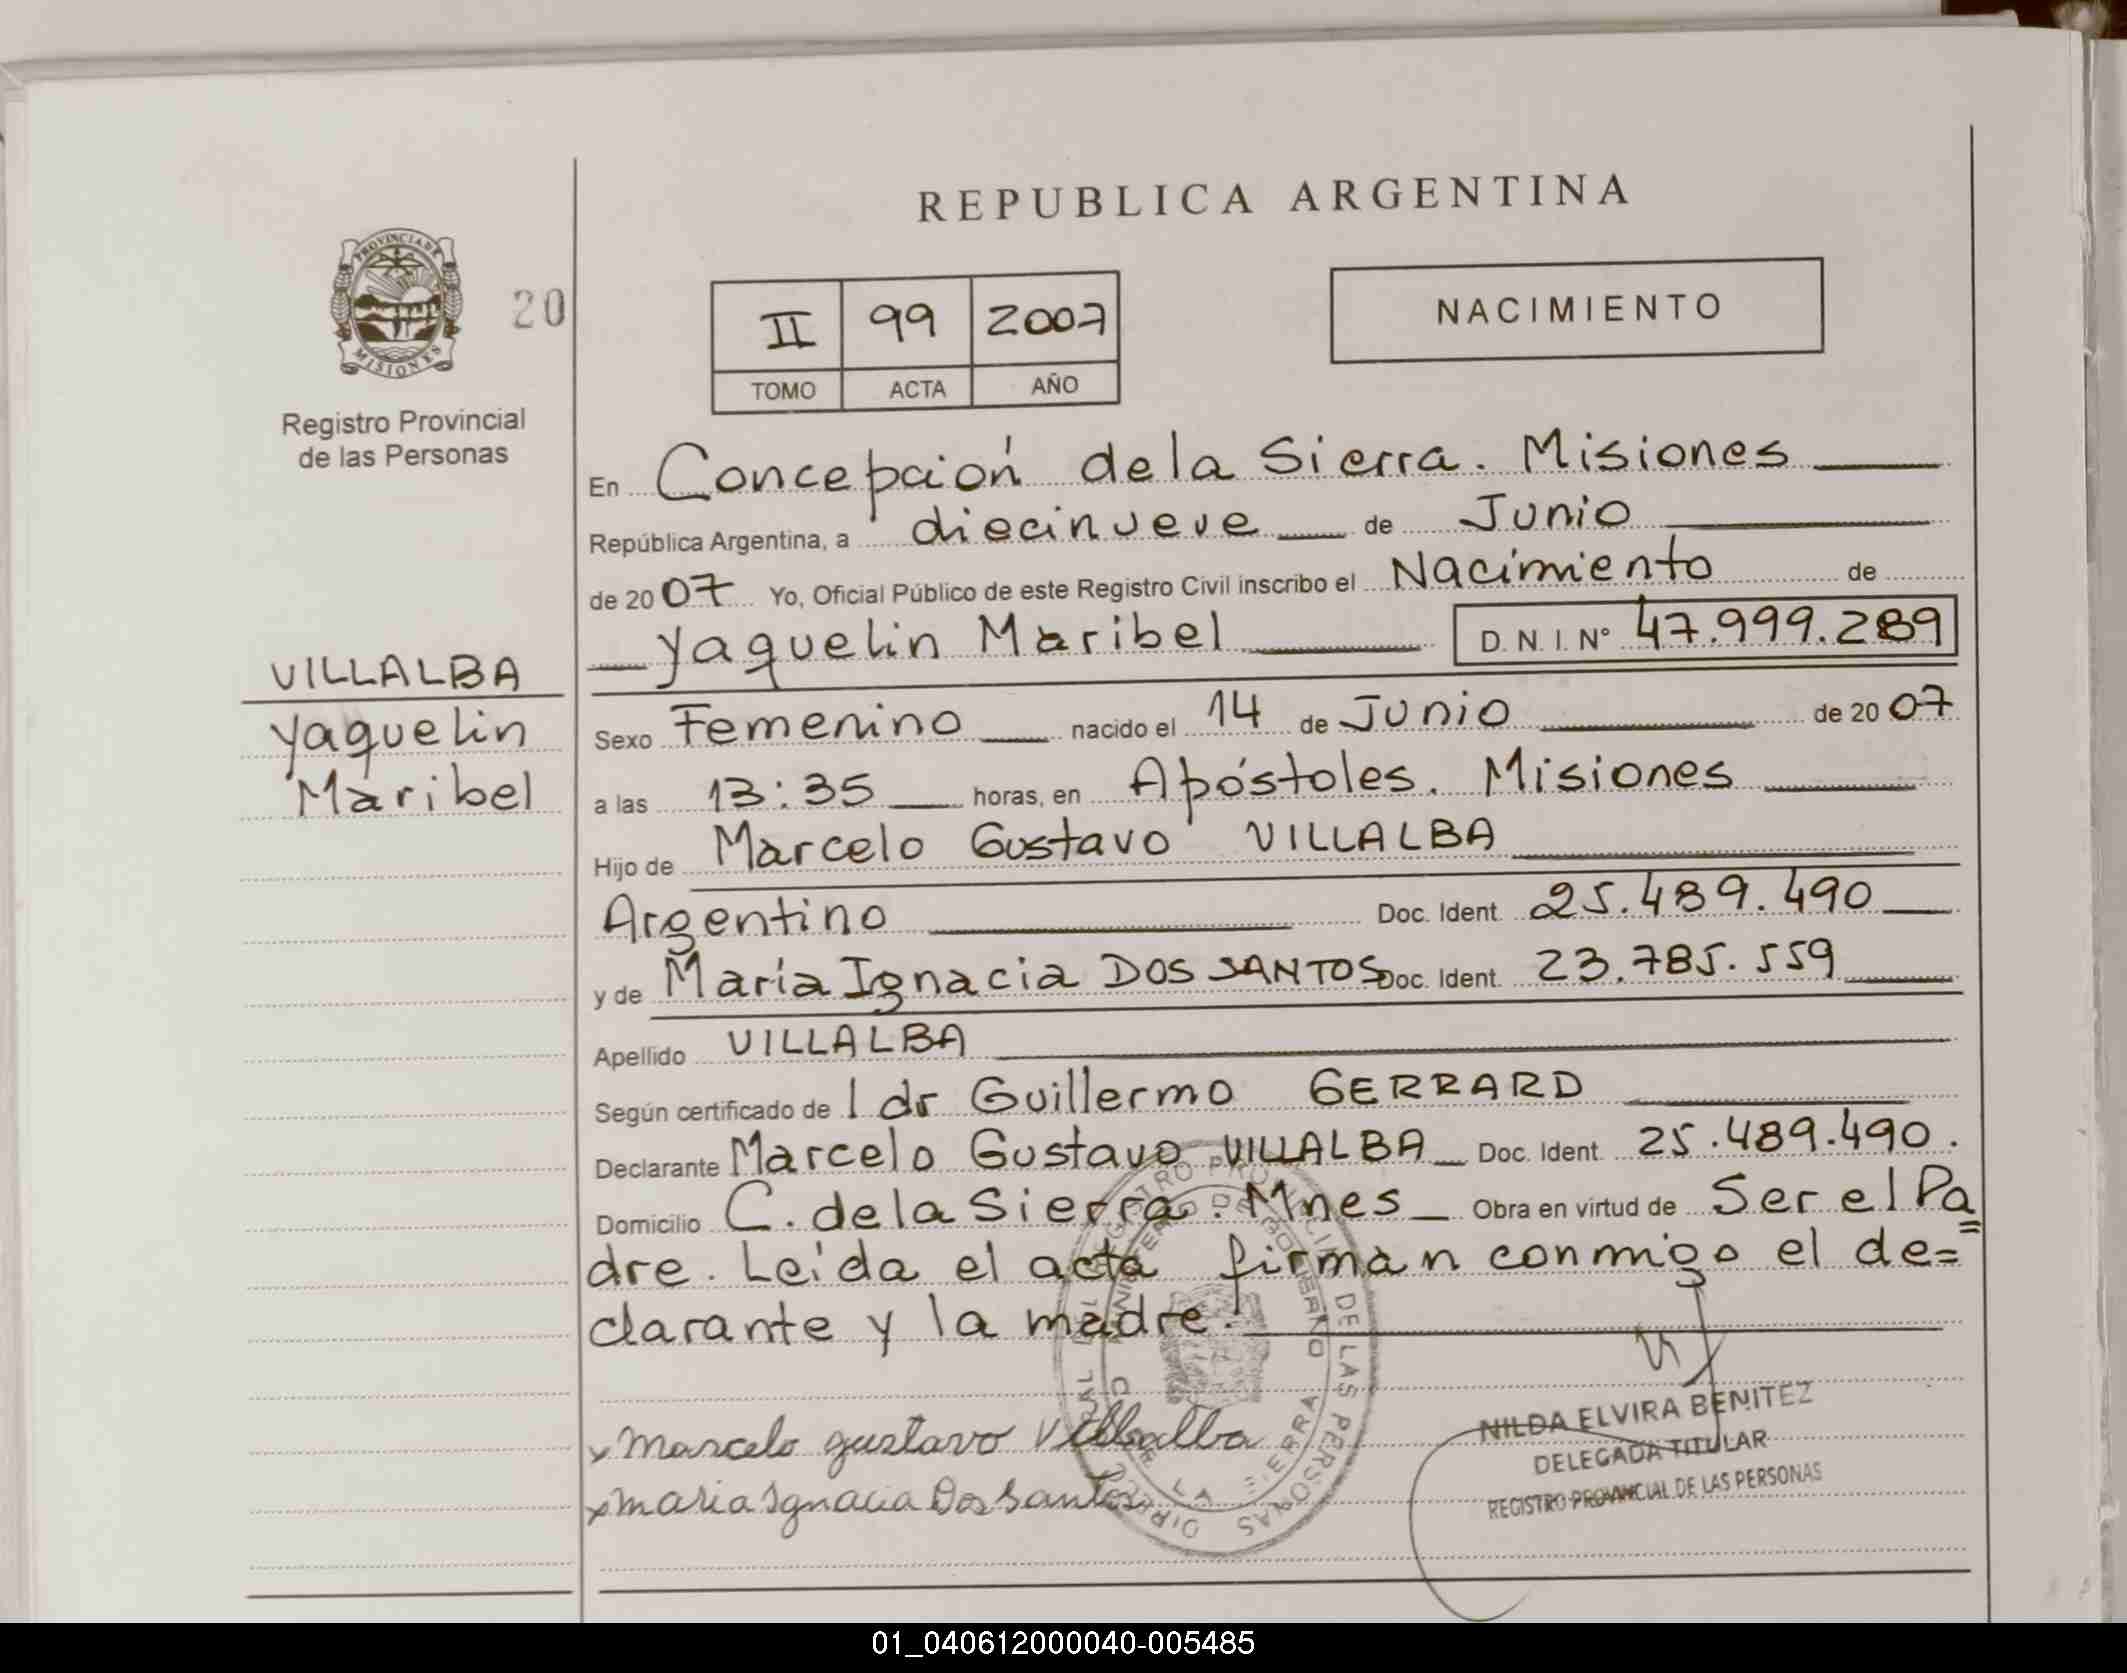 REPUBLICA ARGENTINA
PROVINCIA DE
MISIONES
20
Registro Provincial
de las Personas
II 99 2007
TOMO ACTA AÑO
NACIMIENTO
En Concepción de la Sierra. Misiones
República Argentina, a diecinueve de Junio
de 2007 Yo, Oficial Público de este Registro Civil inscribo el Nacimiento de
Yaquelin Maribel D.N.I. N° 47.999.289
VILLALBA
Yaquelin
Maribel
Sexo Femenino nacido el 14 de Junio de 2007
a las 13:35 horas, en Apóstoles. Misiones
Hijo de Marcelo Gustavo VILLALBA
Argentino Doc. Ident. 25.489.490
y de María Ignacia DOS SANTOS Doc. Ident. 23.785.559
Apellido VILLALBA
Según certificado de l dr Guillermo GERRARD
Declarante Marcelo Gustavo VILLALBA Doc. Ident. 25.489.490.
Domicilio C. de la Sierra. Mnes Obra en virtud de Ser el Pa=
dre. Leída el acta firman conmigo el de=
clarante y la madre.
x marcelo gustavo Villalba
x maria Ignacia Dos Santos
NILDA ELVIRA BENITEZ
DELEGADA TITULAR
REGISTRO PROVINCIAL DE LAS PERSONAS
01_040612000040-005485